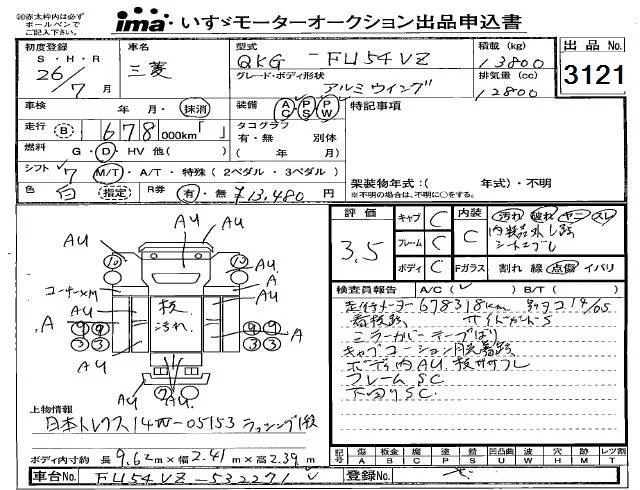 ◎赤太枠内は必ず
ボールペンで
ご記入下さい。
ima いすゞモーターオークション出品申込書
初度登録 車名 型式 積載 (kg) 出品 No.
S・H・R 三菱 QKG - FU54VZ 13800 3121
26/7 月 グレード・ボディ形状 排気量 (cc)
アルミウイング 12800
車検 年 月・抹消 装備 AC PS PW 特記事項
走行 B 678 000km「 」 タコグラフ
有・無 別体
燃料 G・D・HV 他( ) ( 年 月)
シフト 7 M/T・A/T・特殊 ( 2ペダル・3ペダル )
色 白 指定 R券 有・無 ¥13,480 円
架装物年式:( 年式)・不明
※不明の場合は、不明に○をする。
評価 3.5
キャブ C 内装 C 汚れ 破れ ヤニ スレ
フレーム C 内装品外し跡
ボディ C Fガラス 割れ 線 点傷 イバリ
検査員報告 A/C ( ✓ ) B/T ( )
走行メーター678318km
看板跡 サイドガードS
ミラーカバーテープばり
ボディ内AU.
フレームSC
下回りSC.
AU AU
AU AU
コーナーXM A
AU 板 AU
汚れ
A A
⑨⑨ ⑨⑨
③③ ③③
AU AU
AU
上物情報
日本トレクス14W-05153 ラッシング1段
ボディ内寸約 長 9.62m×幅 2.41m×高 2.39m
記号 傷 A 板金 B 腐 C 塗 P 錆 S 凹凸曲 U 波 W 穴 H 跡 M レツ割 T
車台No. FU54VZ-532271 登録No.